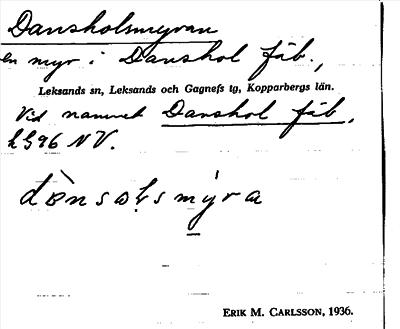 Dansholsmyran
en myr i Danshol fäb.,
Leksands sn, Leksands och Gagnefs tg, Kopparbergs län.
Vid namnet Danshol fäb,
LG96 NV.
ERIK M. CARLSSON, 1936.